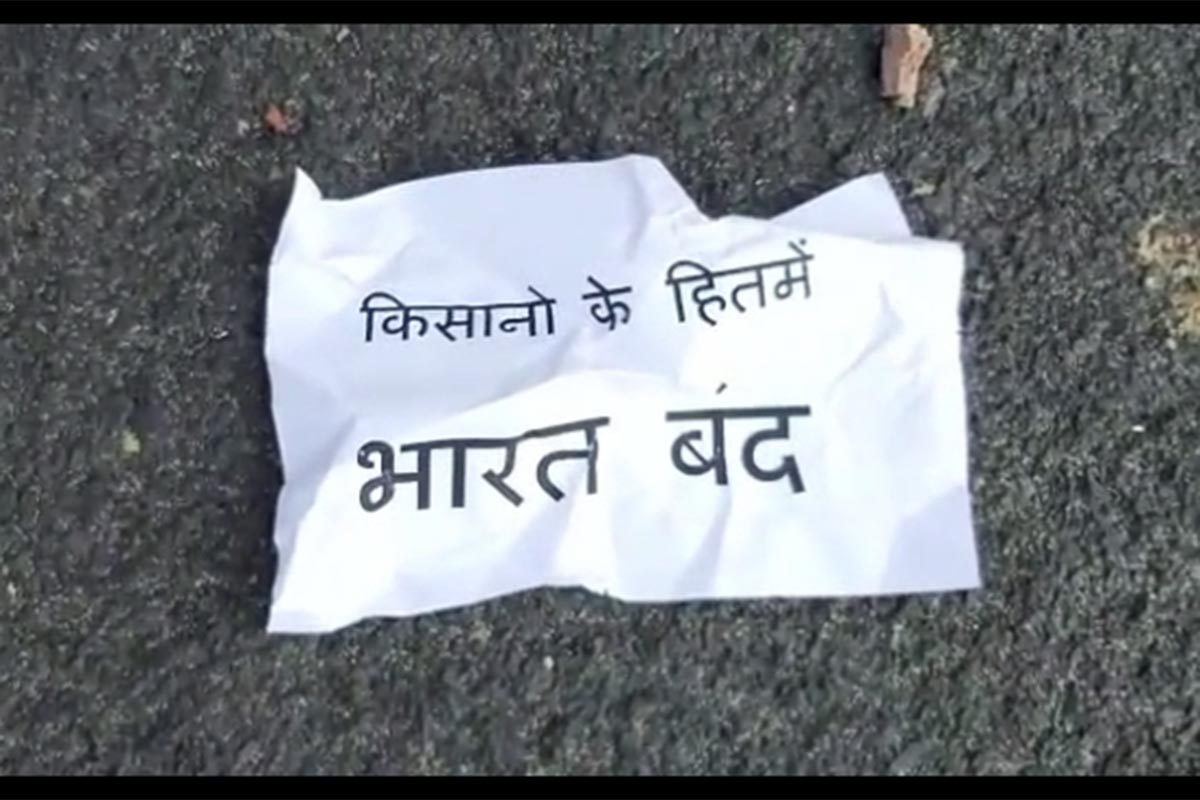 किसानो के हितमें
भारत बंद